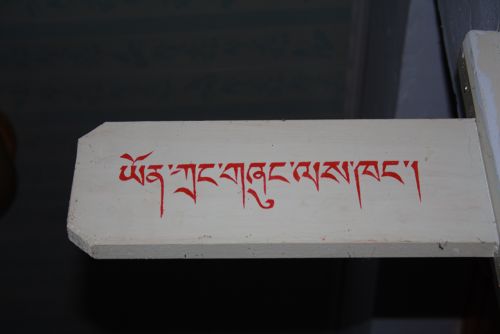 ཡོན་ཀྲང་གཞུང་ལས་ཁང་།